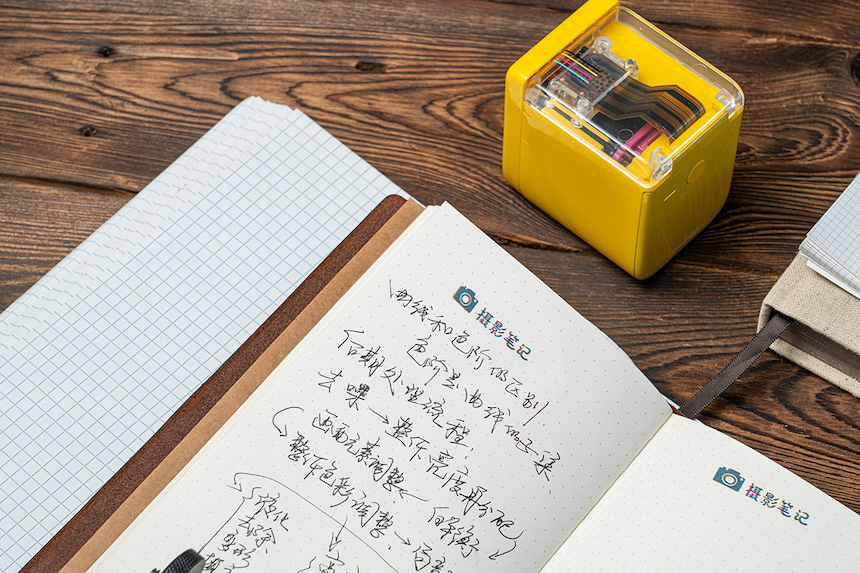 摄影笔记
曲线和色阶的区别.
色阶是曲线的子集、
后期处理流程,
去噪→整体亮度再分配
画面元素调整← 白平衡
整体色彩调整→
液化
去除、
变形
摄影笔记